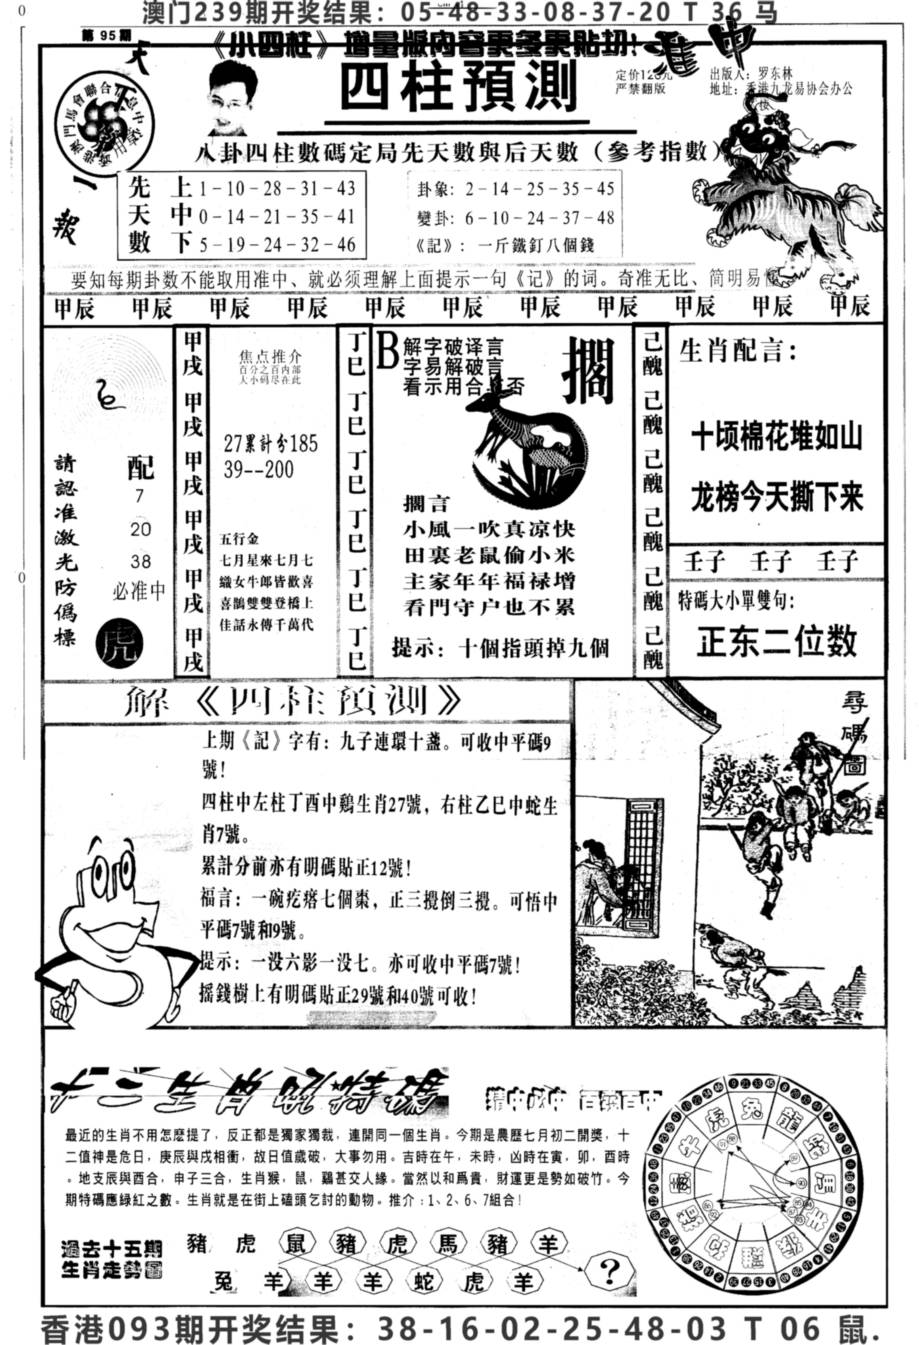 澳门239期开奖结果：05-48-33-08-37-20 T 36 马
第95期
《小四柱》增量版内容更多更贴切！
準中
四柱預測
定价123元
严禁翻版
出版人：罗东林
地址：香港九龙易协会办公
天
下
一
報
八卦四柱數碼定局先天數與后天數（參考指數）
先天數
上1-10-28-31-43
中0-14-21-35-41
下5-19-24-32-46
卦象：2-14-25-35-45
變卦：6-10-24-37-48
《記》：一斤鐵釘八個錢
要知每期卦数不能取用准中、就必须理解上面提示一句《记》的词。奇准无比、简明易
甲辰 甲辰 甲辰 甲辰 甲辰 甲辰 甲辰 甲辰 甲辰 甲辰 甲辰
請認准激光防僞標
配
7
20
38
必准中
虎
甲戌 甲戌 甲戌 甲戌 甲戌 甲戌
焦点推介
百分之百内部
大小码尽在此
27累計分185
39--200
五行金
七月星來七月七
織女牛郎皆歡喜
喜鵲雙雙登橋上
佳話永傳千萬代
丁巳 丁巳 丁巳 丁巳 丁巳 丁巳
B
解字破译言
字易解破言
看示用合是否
搁
搁言
小風一吹真凉快
田裏老鼠偷小米
主家年年福禄增
看門守户也不累
提示：十個指頭掉九個
己醜 己醜 己醜 己醜 己醜 己醜
生肖配言：
十顷棉花堆如山
龙榜今天撕下来
壬子 壬子 壬子
特碼大小單雙句：
正东二位数
解《四柱預測》
上期《記》字有：九子連環十盞。可收中平碼9
號！
四柱中左柱丁酉中鷄生肖27號，右柱乙巳中蛇生
肖7號。
累計分前亦有明碼貼正12號！
福言：一碗疙瘩七個棗，正三攪倒三攪。可悟中
平碼7號和9號。
提示：一没六影一没七。亦可收中平碼7號！
摇錢樹上有明碼貼正29號和40號可收！
尋碼圖
十二生肖配特碼
猜中必中 百發百中
最近的生肖不用怎麽提了，反正都是獨家獨裁，連開同一個生肖。今期是農歷七月初二開獎，十
二值神是危日，庚辰與戌相衝，故日值歲破，大事勿用。吉時在午，未時，凶時在寅，卯，酉時
。地支辰與酉合，申子三合，生肖猴，鼠，鷄甚交人緣。當然以和爲貴，財運更是勢如破竹。今
期特碼應緑紅之數。生肖就是在街上磕頭乞討的動物。推介：1、2、6、7組合！
過去十五期
生肖走勢圖
豬 虎 鼠 豬 虎 馬 豬 羊
兔 羊 羊 羊 蛇 虎 羊 ?
香港093期开奖结果：38-16-02-25-48-03 T 06 鼠.